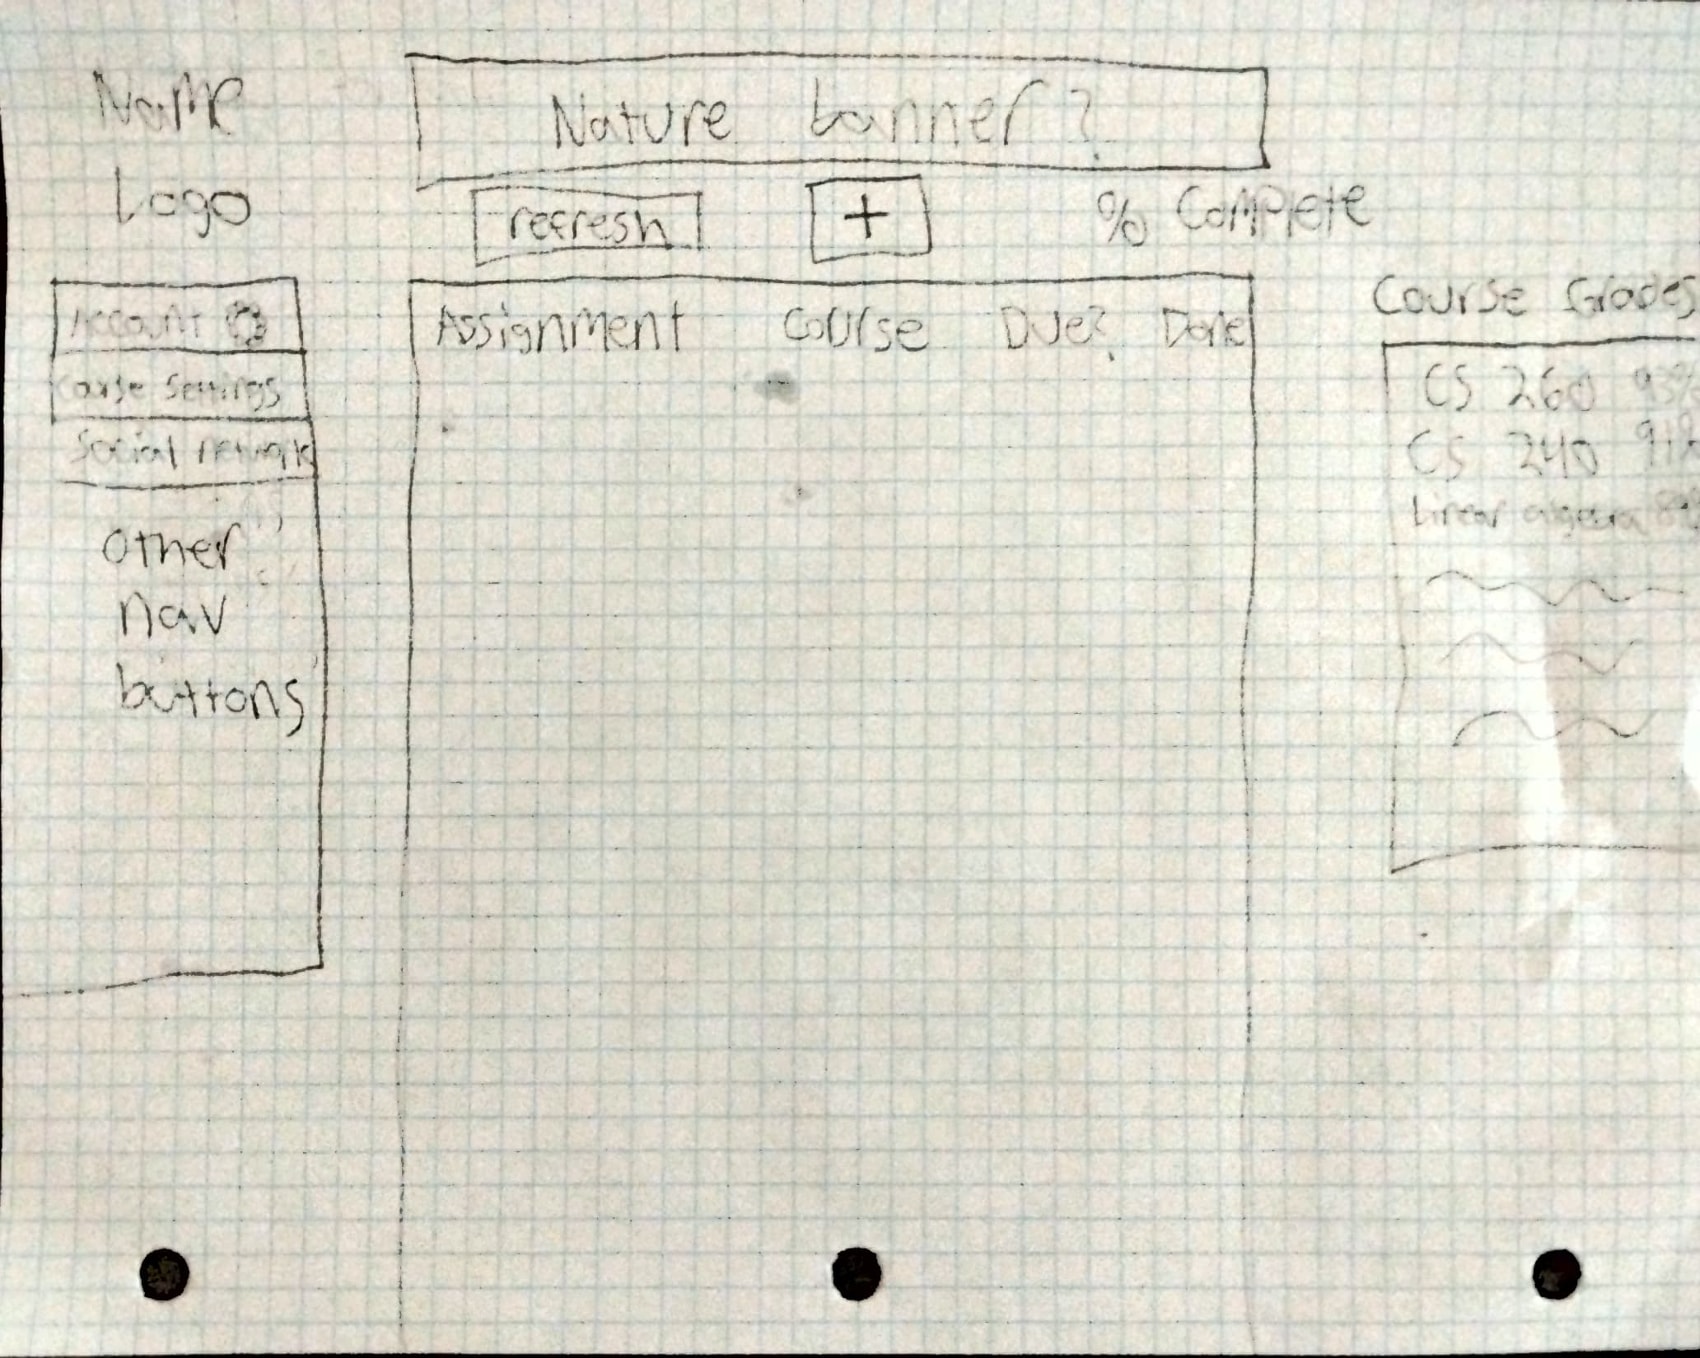 Name
Logo
Nature banner?
refresh
+
% Complete
Account
Course Settings
Social network
other
nav
buttons
Assignment Course Due? Done
Course Grades
CS 260 93%
CS 240 91%
Linear algebra